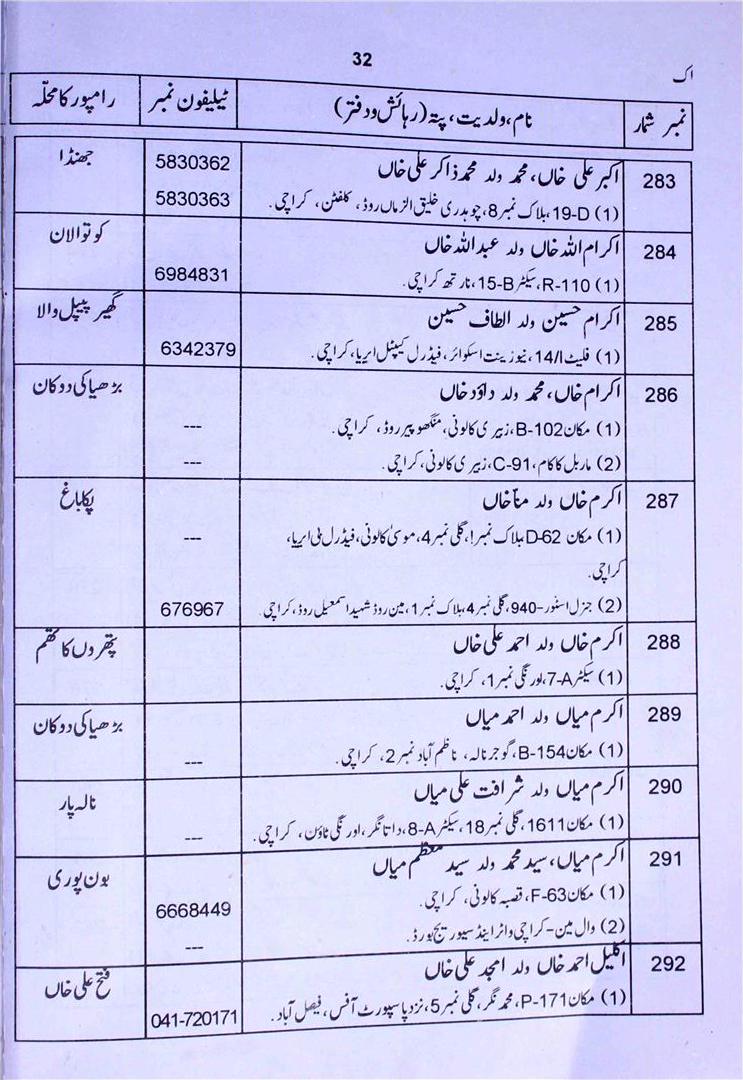 32
اک
نمبر شمار	نام، ولدیت، پتہ (رہائش و دفتر)	ٹیلیفون نمبر	رامپور کا محلّہ
283	اکبر علی خاں، محمد ولد محمد ذاکر علی خاں	5830362	جھنڈا
(1) 19-D، بلاک نمبر 8، چوہدری خلیق الزماں روڈ، کلفٹن، کراچی۔	5830363
284	اکرام اللہ خاں ولد عبداللہ خاں	کوتوالان
(1) R-110، سیکٹر 15-B، نارتھ کراچی۔	6984831
285	اکرام حسین ولد الطاف حسین	گھیر پیپل والا
(1) فلیٹ 14/I، نیوزینت اسکوائر، فیڈرل کیپٹل ایریا، کراچی۔	6342379
286	اکرام خاں، محمد ولد داؤد خاں	بڑھیا کی دوکان
(1) مکان B-102، زبیری کالونی، منگھوپیر روڈ، کراچی۔	---
(2) ماربل کا کام، C-91، زبیری کالونی، کراچی۔	---
287	اکرم خاں ولد منّا خاں	پکا باغ
(1) مکان D-62 بلاک نمبر ا، گلی نمبر 4، موسیٰ کالونی، فیڈرل بی ایریا،	---
کراچی۔
(2) جنرل اسٹور-940، گلی نمبر 4، بلاک نمبر 1، مین روڈ شہید اسمعیل روڈ، کراچی۔	676967
288	اکرم خاں ولد احمد علی خاں	پتھروں کا تھم
(1) سیکٹر 7-A، اورنگی نمبر 1، کراچی۔
289	اکرم میاں ولد احمد میاں	بڑھیا کی دوکان
(1) مکان B-154، گوجر نالہ، ناظم آباد نمبر 2، کراچی۔	---
290	اکرم میاں ولد شرافت علی میاں	نالہ پار
(1) مکان 1611، گلی نمبر 18، سیکٹر 8-A، داتا نگر، اورنگی ٹاؤن، کراچی۔	---
291	اکرم میاں، سید محمد ولد سید معظم میاں	بون پوری
(1) مکان F-63، قصبہ کالونی، کراچی۔	6668449
(2) وال مین-کراچی واٹر اینڈ سیوریج بورڈ۔	---
292	اکلیل احمد خاں ولد امجد علی خاں	فتح علی خاں
(1) مکان P-171، محمد نگر، گلی نمبر 5، نزد پاسپورٹ آفس، فیصل آباد۔	041-720171